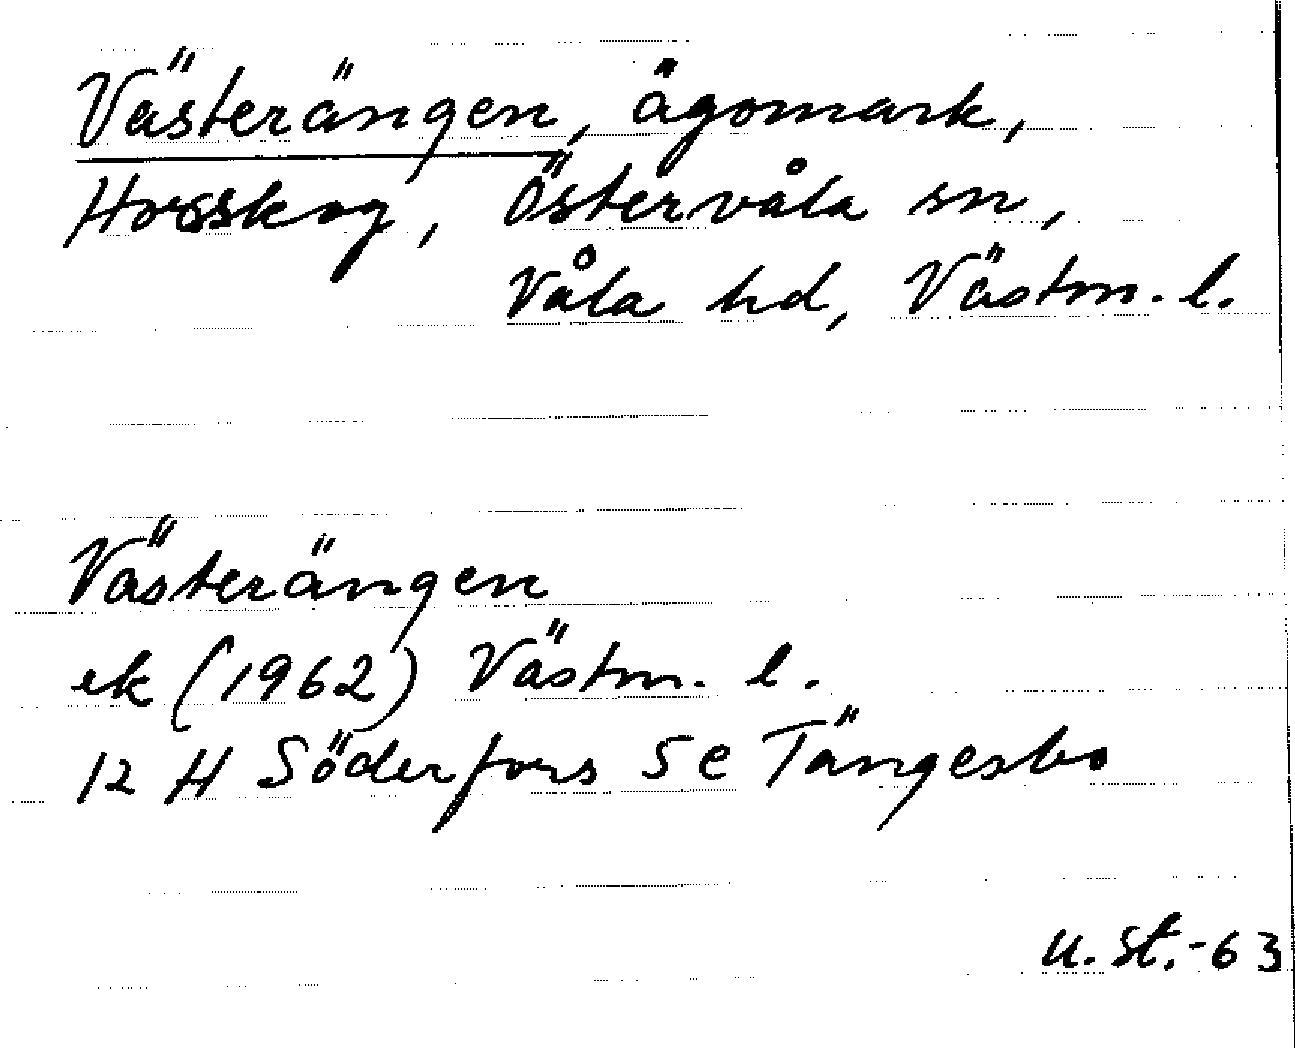 Västerängen, ägomark,
Horsskog, Östervåla sn,
Våla hd, Västm. l.
Västerängen
ek (1962) Västm. l.
12 H Söderfors 5e Tängesbo
U. St. -63